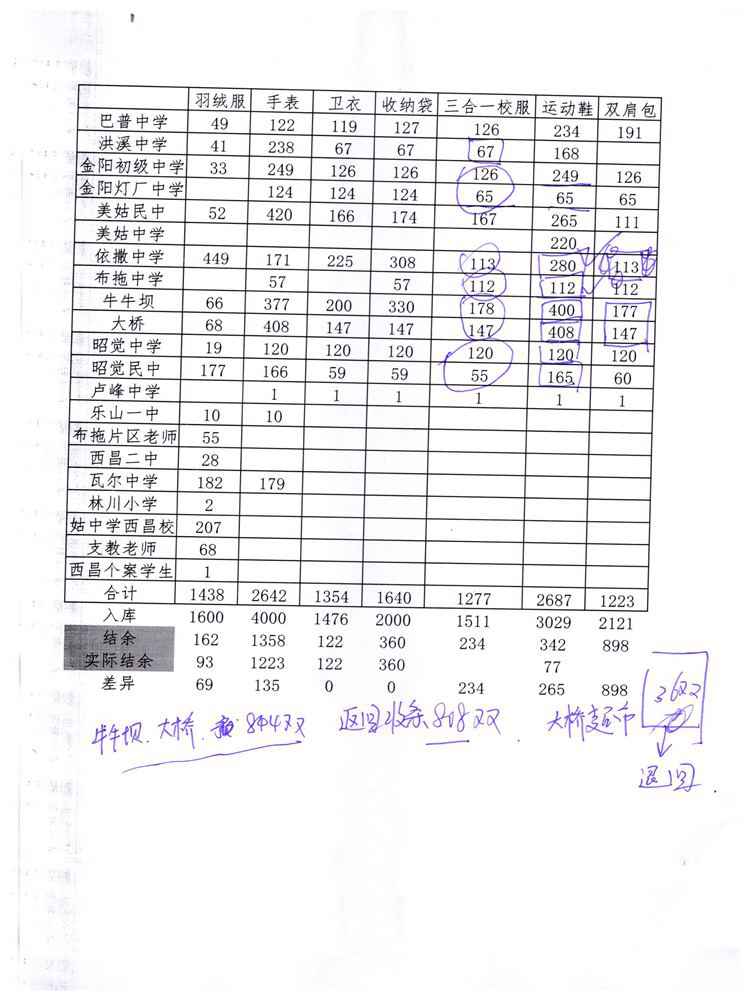 羽绒服 手表 卫衣 收纳袋 三合一校服 运动鞋 双肩包
巴普中学 49 122 119 127 126 234 191
洪溪中学 41 238 67 67 67 168
金阳初级中学 33 249 126 126 126 249 126
金阳灯厂中学 124 124 124 65 65 65
美姑民中 52 420 166 174 167 265 111
美姑中学 220
依撒中学 449 171 225 308 113 280 113
布拖中学 57 57 112 112 112
牛牛坝 66 377 200 330 178 400 177
大桥 68 408 147 147 147 408 147
昭觉中学 19 120 120 120 120 120 120
昭觉民中 177 166 59 59 55 165 60
卢峰中学 1 1 1 1 1 1
乐山一中 10 10
布拖片区老师 55
西昌二中 28
瓦尔中学 182 179
林川小学 2
姑中学西昌校 207
支教老师 68
西昌个案学生 1
合计 1438 2642 1354 1640 1277 2687 1223
入库 1600 4000 1476 2000 1511 3029 2121
结余 162 1358 122 360 234 342 898
实际结余 93 1223 122 360 77
差异 69 135 0 0 234 265 898
牛牛坝、大桥、844双 返回收条808双、大桥 36双
退回.